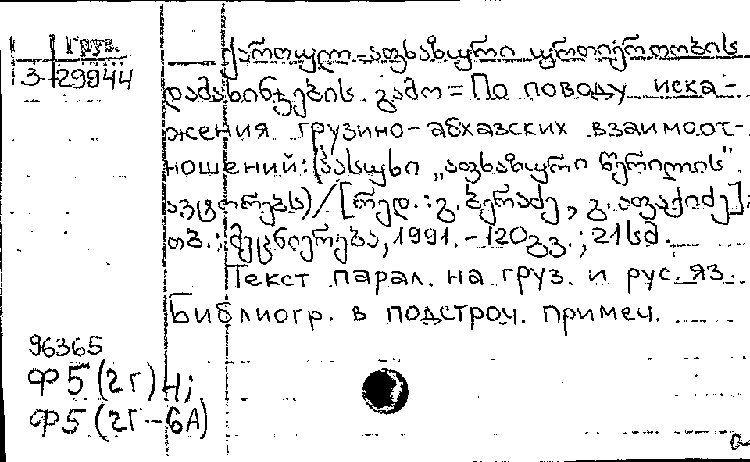 Груз.
3-29944
ქართულ-აფხაზური ურთიერთობის
დამახინჯების გამო = По поводу иска-
жения грузино-абхазских взаимоот-
ношений: (პასუხი „აფხაზური წერილის"
ავტორებს) / [რედ.: გ. ბერაძე, გ. აფაქიძე].
თბ.: მეცნიერება, 1991. - 120გვ.; 21სმ.
Текст парал. на груз. и рус. яз.
Библиогр. в подстроч. примеч.
96365
Ф5(2Г)4;
Ф5(2Г-6А)